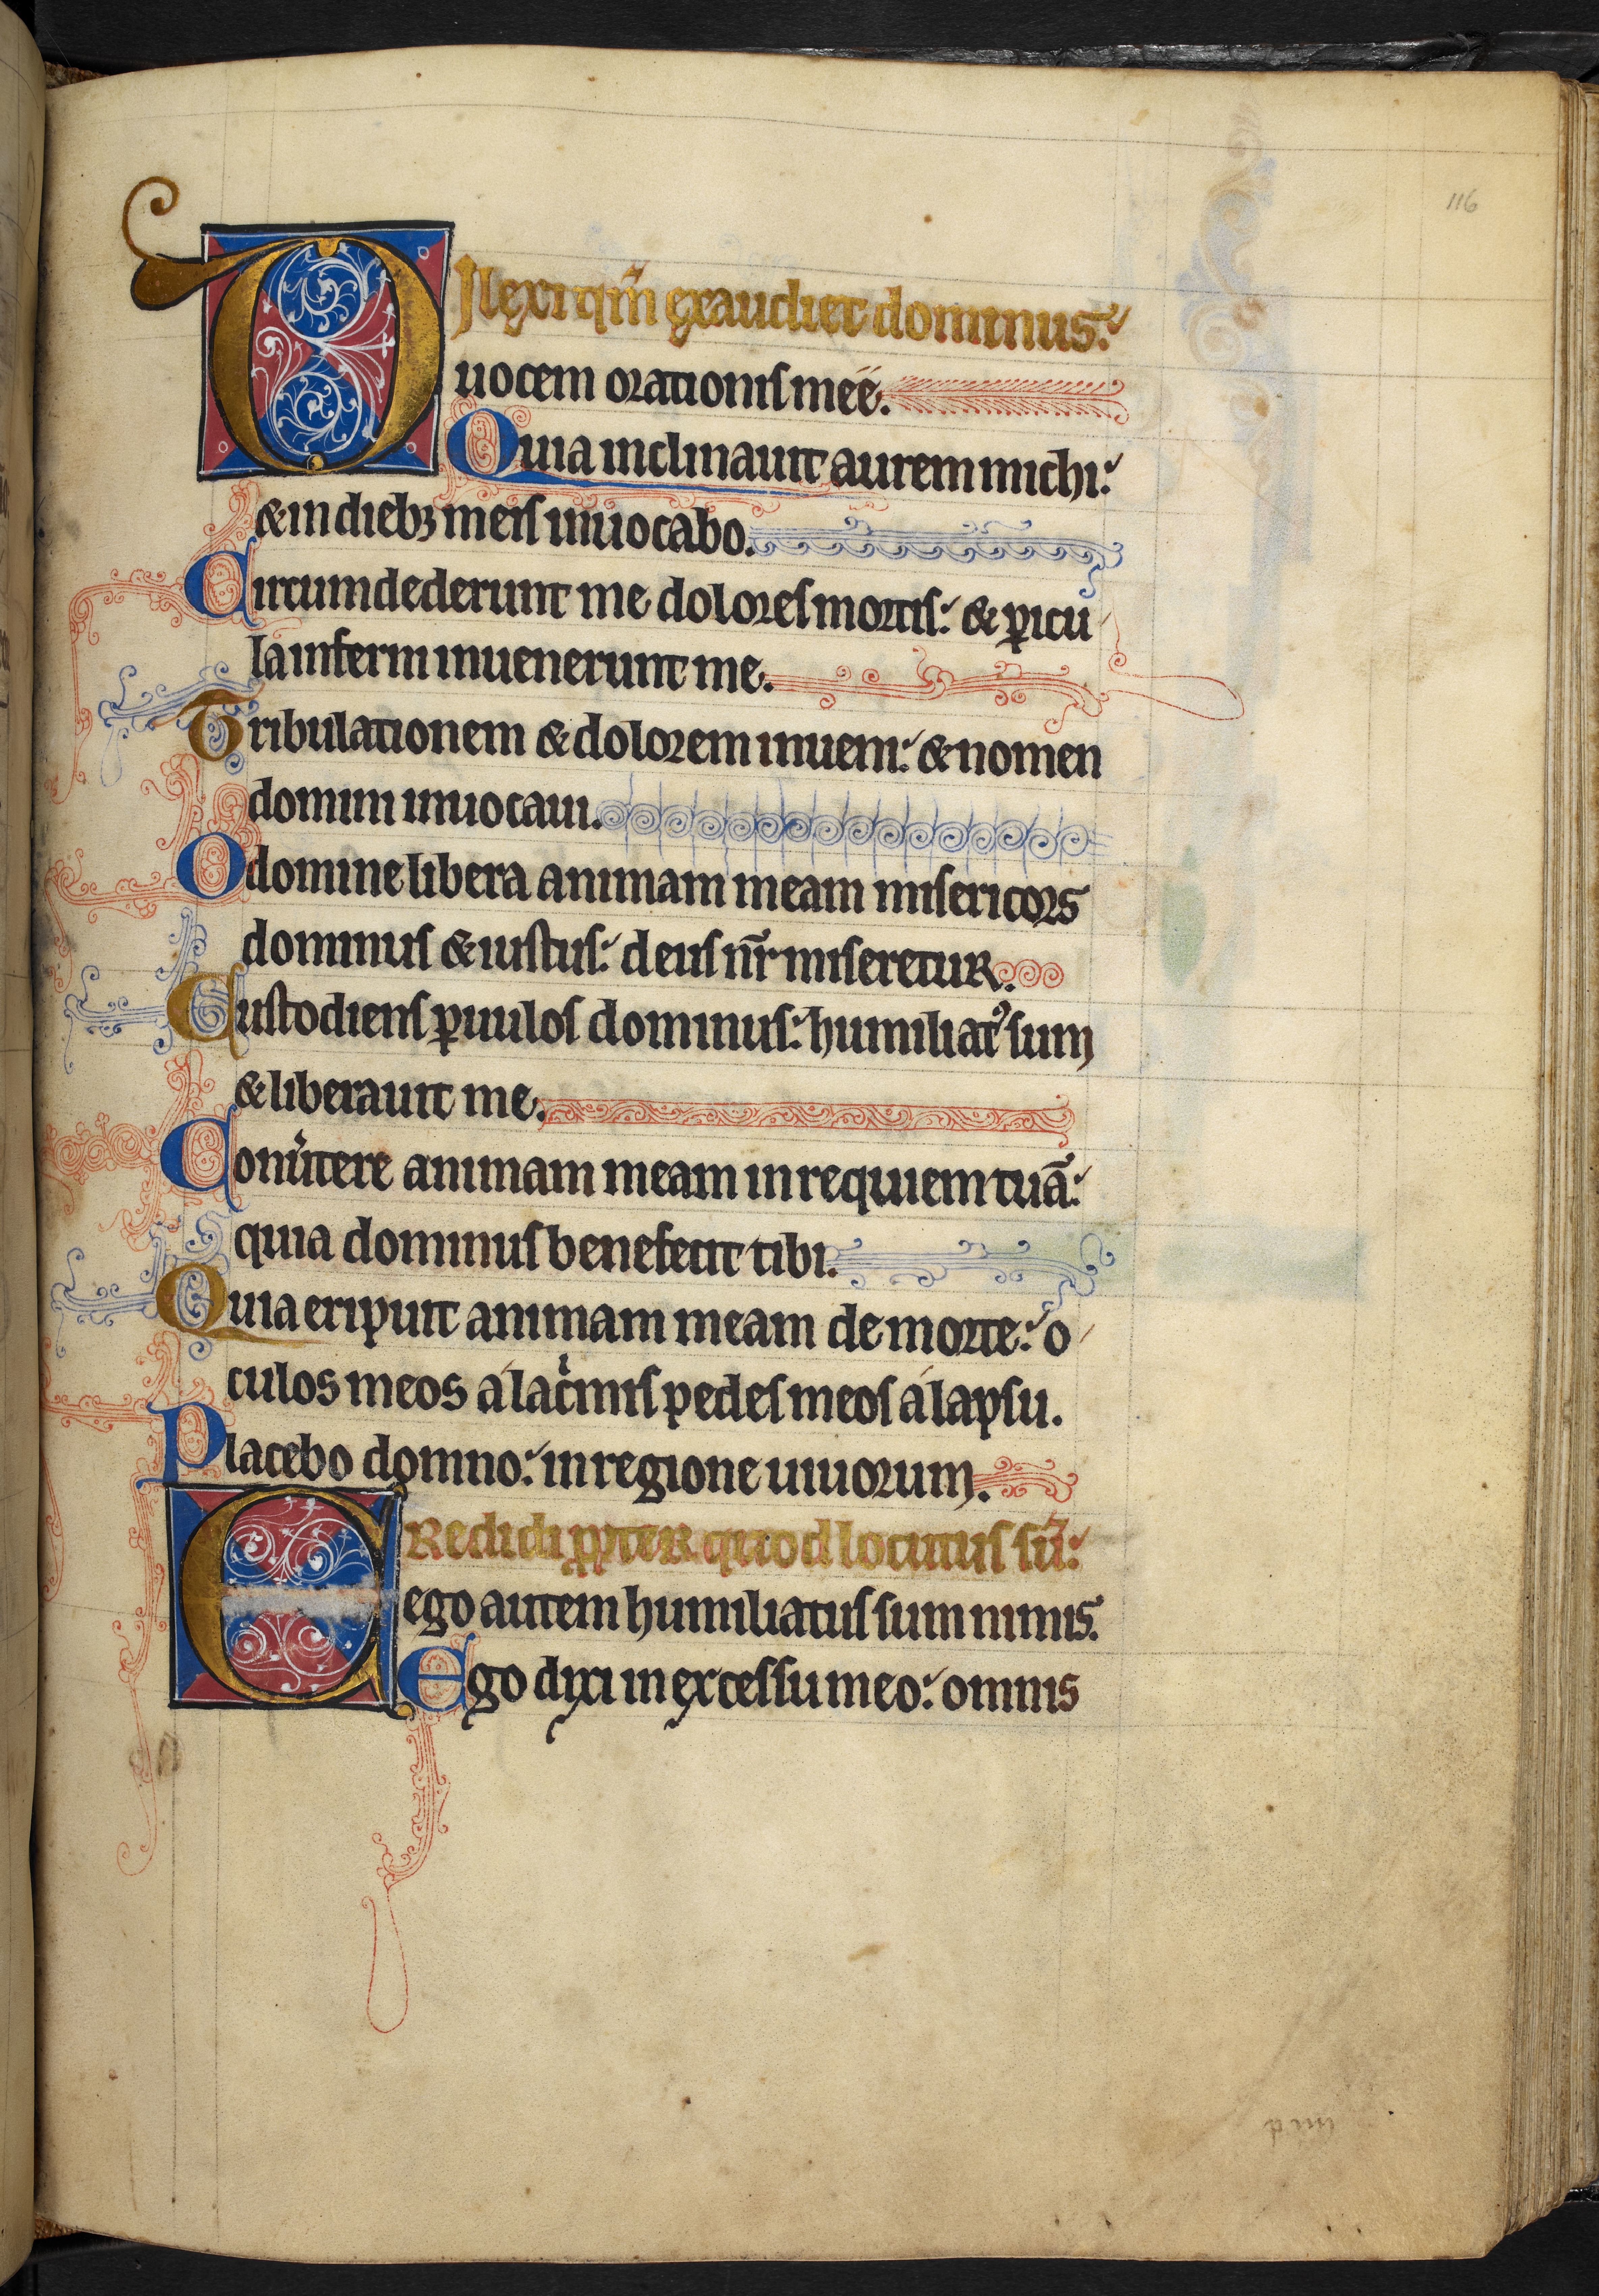 116
Dilexi qm̄ exaudiet dominus:
uocem orationis mee.
Quia inclinauit aurem michi:
& in dieb; meis inuocabo.
Circumdederunt me dolores mortis: & p̱icu
la inferni inuenerunt me.
Tribulationem & dolorem inueni: & nomen
domini inuocaui.
O domine libera animam meam misericors
dominus & iustus: deus nr̄ miseretur.
Custodiens p̱uulos dominus: humiliat᾿ sum
& liberauit me.
Conu̾tere animam meam in requiem tuā:
quia dominus benefecit tibi.
Quia eripuit animam meam de morte: o
culos meos a lac̾mis pedes meos a lapsu.
Placebo domno: in regione uiuorum.
Credidi pp̱ter quod locutus sū:
ego autem humiliatus sum nimis.
Ego dixi in excessu meo: omnis